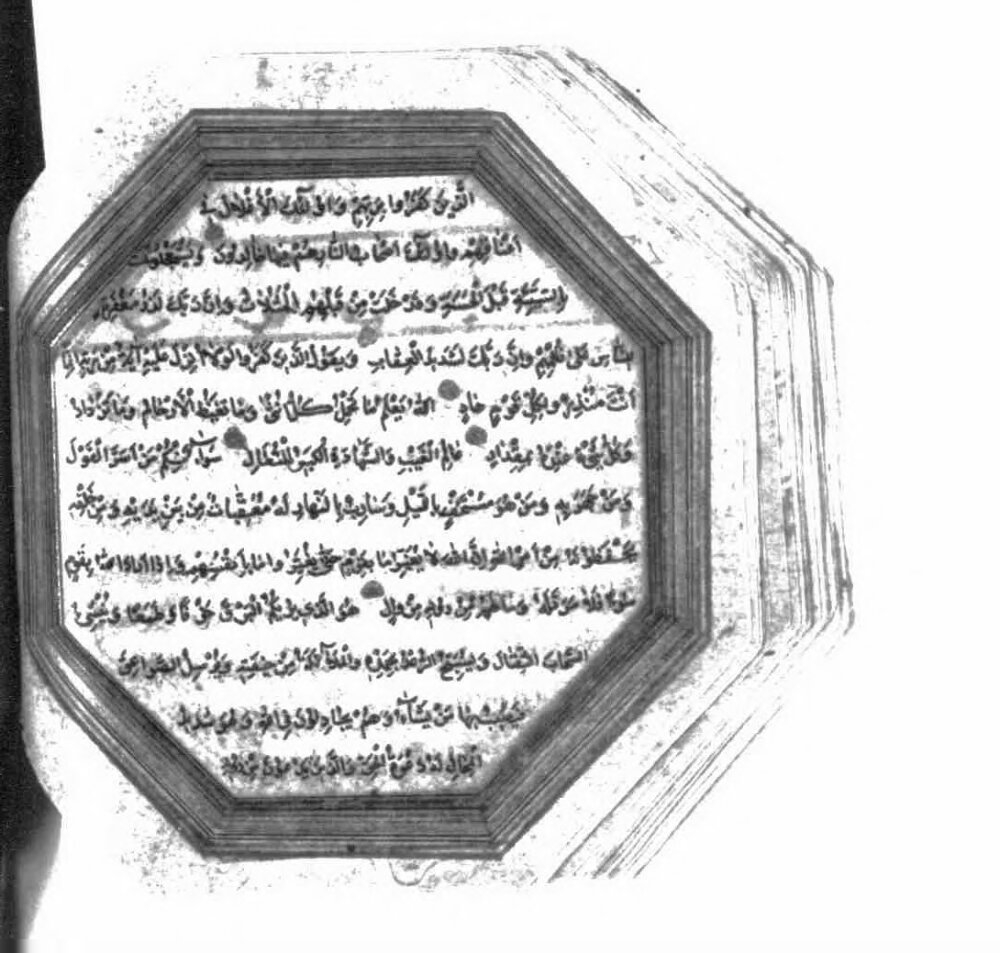 الَّذِينَ كَفَرُوا بِرَبِّهِمْ وَأُولَٰئِكَ الْأَغْلَالُ فِي
أَعْنَاقِهِمْ وَأُولَٰئِكَ أَصْحَابُ النَّارِ هُمْ فِيهَا خَالِدُونَ وَيَسْتَعْجِلُونَكَ
بِالسَّيِّئَةِ قَبْلَ الْحَسَنَةِ وَقَدْ خَلَتْ مِنْ قَبْلِهِمُ الْمَثُلَاتُ وَإِنَّ رَبَّكَ لَذُو مَغْفِرَةٍ
لِلنَّاسِ عَلَىٰ ظُلْمِهِمْ وَإِنَّ رَبَّكَ لَشَدِيدُ الْعِقَابِ وَيَقُولُ الَّذِينَ كَفَرُوا لَوْلَا أُنْزِلَ عَلَيْهِ آيَةٌ مِنْ رَبِّهِ إِنَّمَا
أَنْتَ مُنْذِرٌ وَلِكُلِّ قَوْمٍ هَادٍ اللَّهُ يَعْلَمُ مَا تَحْمِلُ كُلُّ أُنْثَىٰ وَمَا تَغِيضُ الْأَرْحَامُ وَمَا تَزْدَادُ
وَكُلُّ شَيْءٍ عِنْدَهُ بِمِقْدَارٍ عَالِمُ الْغَيْبِ وَالشَّهَادَةِ الْكَبِيرُ الْمُتَعَالِ سَوَاءٌ مِنْكُمْ مَنْ أَسَرَّ الْقَوْلَ
وَمَنْ جَهَرَ بِهِ وَمَنْ هُوَ مُسْتَخْفٍ بِاللَّيْلِ وَسَارِبٌ بِالنَّهَارِ لَهُ مُعَقِّبَاتٌ مِنْ بَيْنِ يَدَيْهِ وَمِنْ خَلْفِهِ
يَحْفَظُونَهُ مِنْ أَمْرِ اللَّهِ إِنَّ اللَّهَ لَا يُغَيِّرُ مَا بِقَوْمٍ حَتَّىٰ يُغَيِّرُوا مَا بِأَنْفُسِهِمْ وَإِذَا أَرَادَ اللَّهُ بِقَوْمٍ
سُوءًا فَلَا مَرَدَّ لَهُ وَمَا لَهُمْ مِنْ دُونِهِ مِنْ وَالٍ هُوَ الَّذِي يُرِيكُمُ الْبَرْقَ خَوْفًا وَطَمَعًا وَيُنْشِئُ
السَّحَابَ الثِّقَالَ وَيُسَبِّحُ الرَّعْدُ بِحَمْدِهِ وَالْمَلَائِكَةُ مِنْ خِيفَتِهِ وَيُرْسِلُ الصَّوَاعِقَ
فَيُصِيبُ بِهَا مَنْ يَشَاءُ وَهُمْ يُجَادِلُونَ فِي اللَّهِ وَهُوَ شَدِيدُ
الْمِحَالِ لَهُ دَعْوَةُ الْحَقِّ وَالَّذِينَ يَدْعُونَ مِنْ دُونِهِ